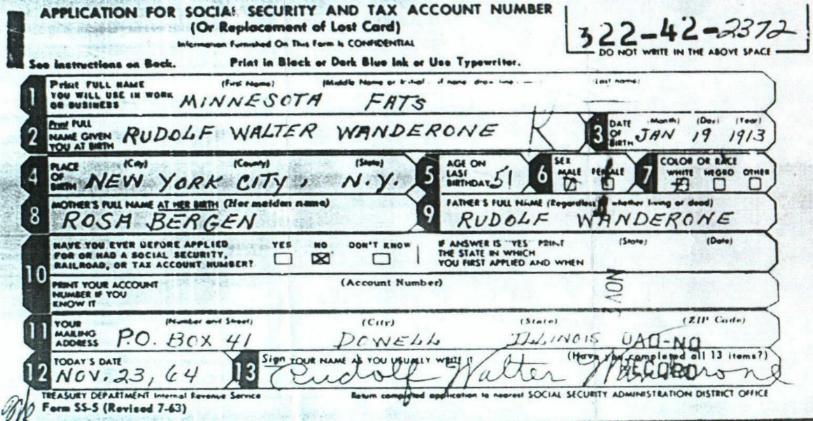 APPLICATION FOR SOCIAL SECURITY AND TAX ACCOUNT NUMBER
(Or Replacement of Lost Card)
Information Furnished On This Form Is CONFIDENTIAL
322-42-2372
DO NOT WRITE IN THE ABOVE SPACE
See Instructions on Back. Print in Black or Dark Blue Ink or Use Typewriter.
1 Print FULL NAME YOU WILL USE IN WORK OR BUSINESS (First Name) (Middle Name or Initial (Last name)
MINNESOTA FATS
2 Print FULL NAME GIVEN YOU AT BIRTH RUDOLF WALTER WANDERONE K 3 DATE OF BIRTH (Month) (Day) (Year) JAN 19 1913
4 PLACE OF BIRTH (City) (County) (State) NEW YORK CITY, N.Y. 5 AGE ON LAST BIRTHDAY 51 6 SEX MALE FEMALE 7 COLOR OR RACE WHITE NEGRO OTHER
8 MOTHER'S FULL NAME AT HER BIRTH (Her maiden name) ROSA BERGEN 9 FATHER'S FULL NAME (Regardless of whether living or dead) RUDOLF WANDERONE
10 HAVE YOU EVER BEFORE APPLIED FOR OR HAD A SOCIAL SECURITY, RAILROAD, OR TAX ACCOUNT NUMBER? YES NO DON'T KNOW IF ANSWER IS "YES" PRINT THE STATE IN WHICH YOU FIRST APPLIED AND WHEN (State) (Date)
PRINT YOUR ACCOUNT NUMBER IF YOU KNOW IT (Account Number) NOV
11 YOUR MAILING ADDRESS (Number and Street) (City) (State) (ZIP Code)
P.O. BOX 41 DOWELL ILLINOIS OAO-NO RECORD
12 TODAY'S DATE NOV. 23, 64 13 Sign YOUR NAME AS YOU USUALLY WRITE IT (Have you completed all 13 items?)
Rudolf Walter Wanderone
TREASURY DEPARTMENT Internal Revenue Service Return completed application to nearest SOCIAL SECURITY ADMINISTRATION DISTRICT OFFICE
Form SS-5 (Revised 7-63)